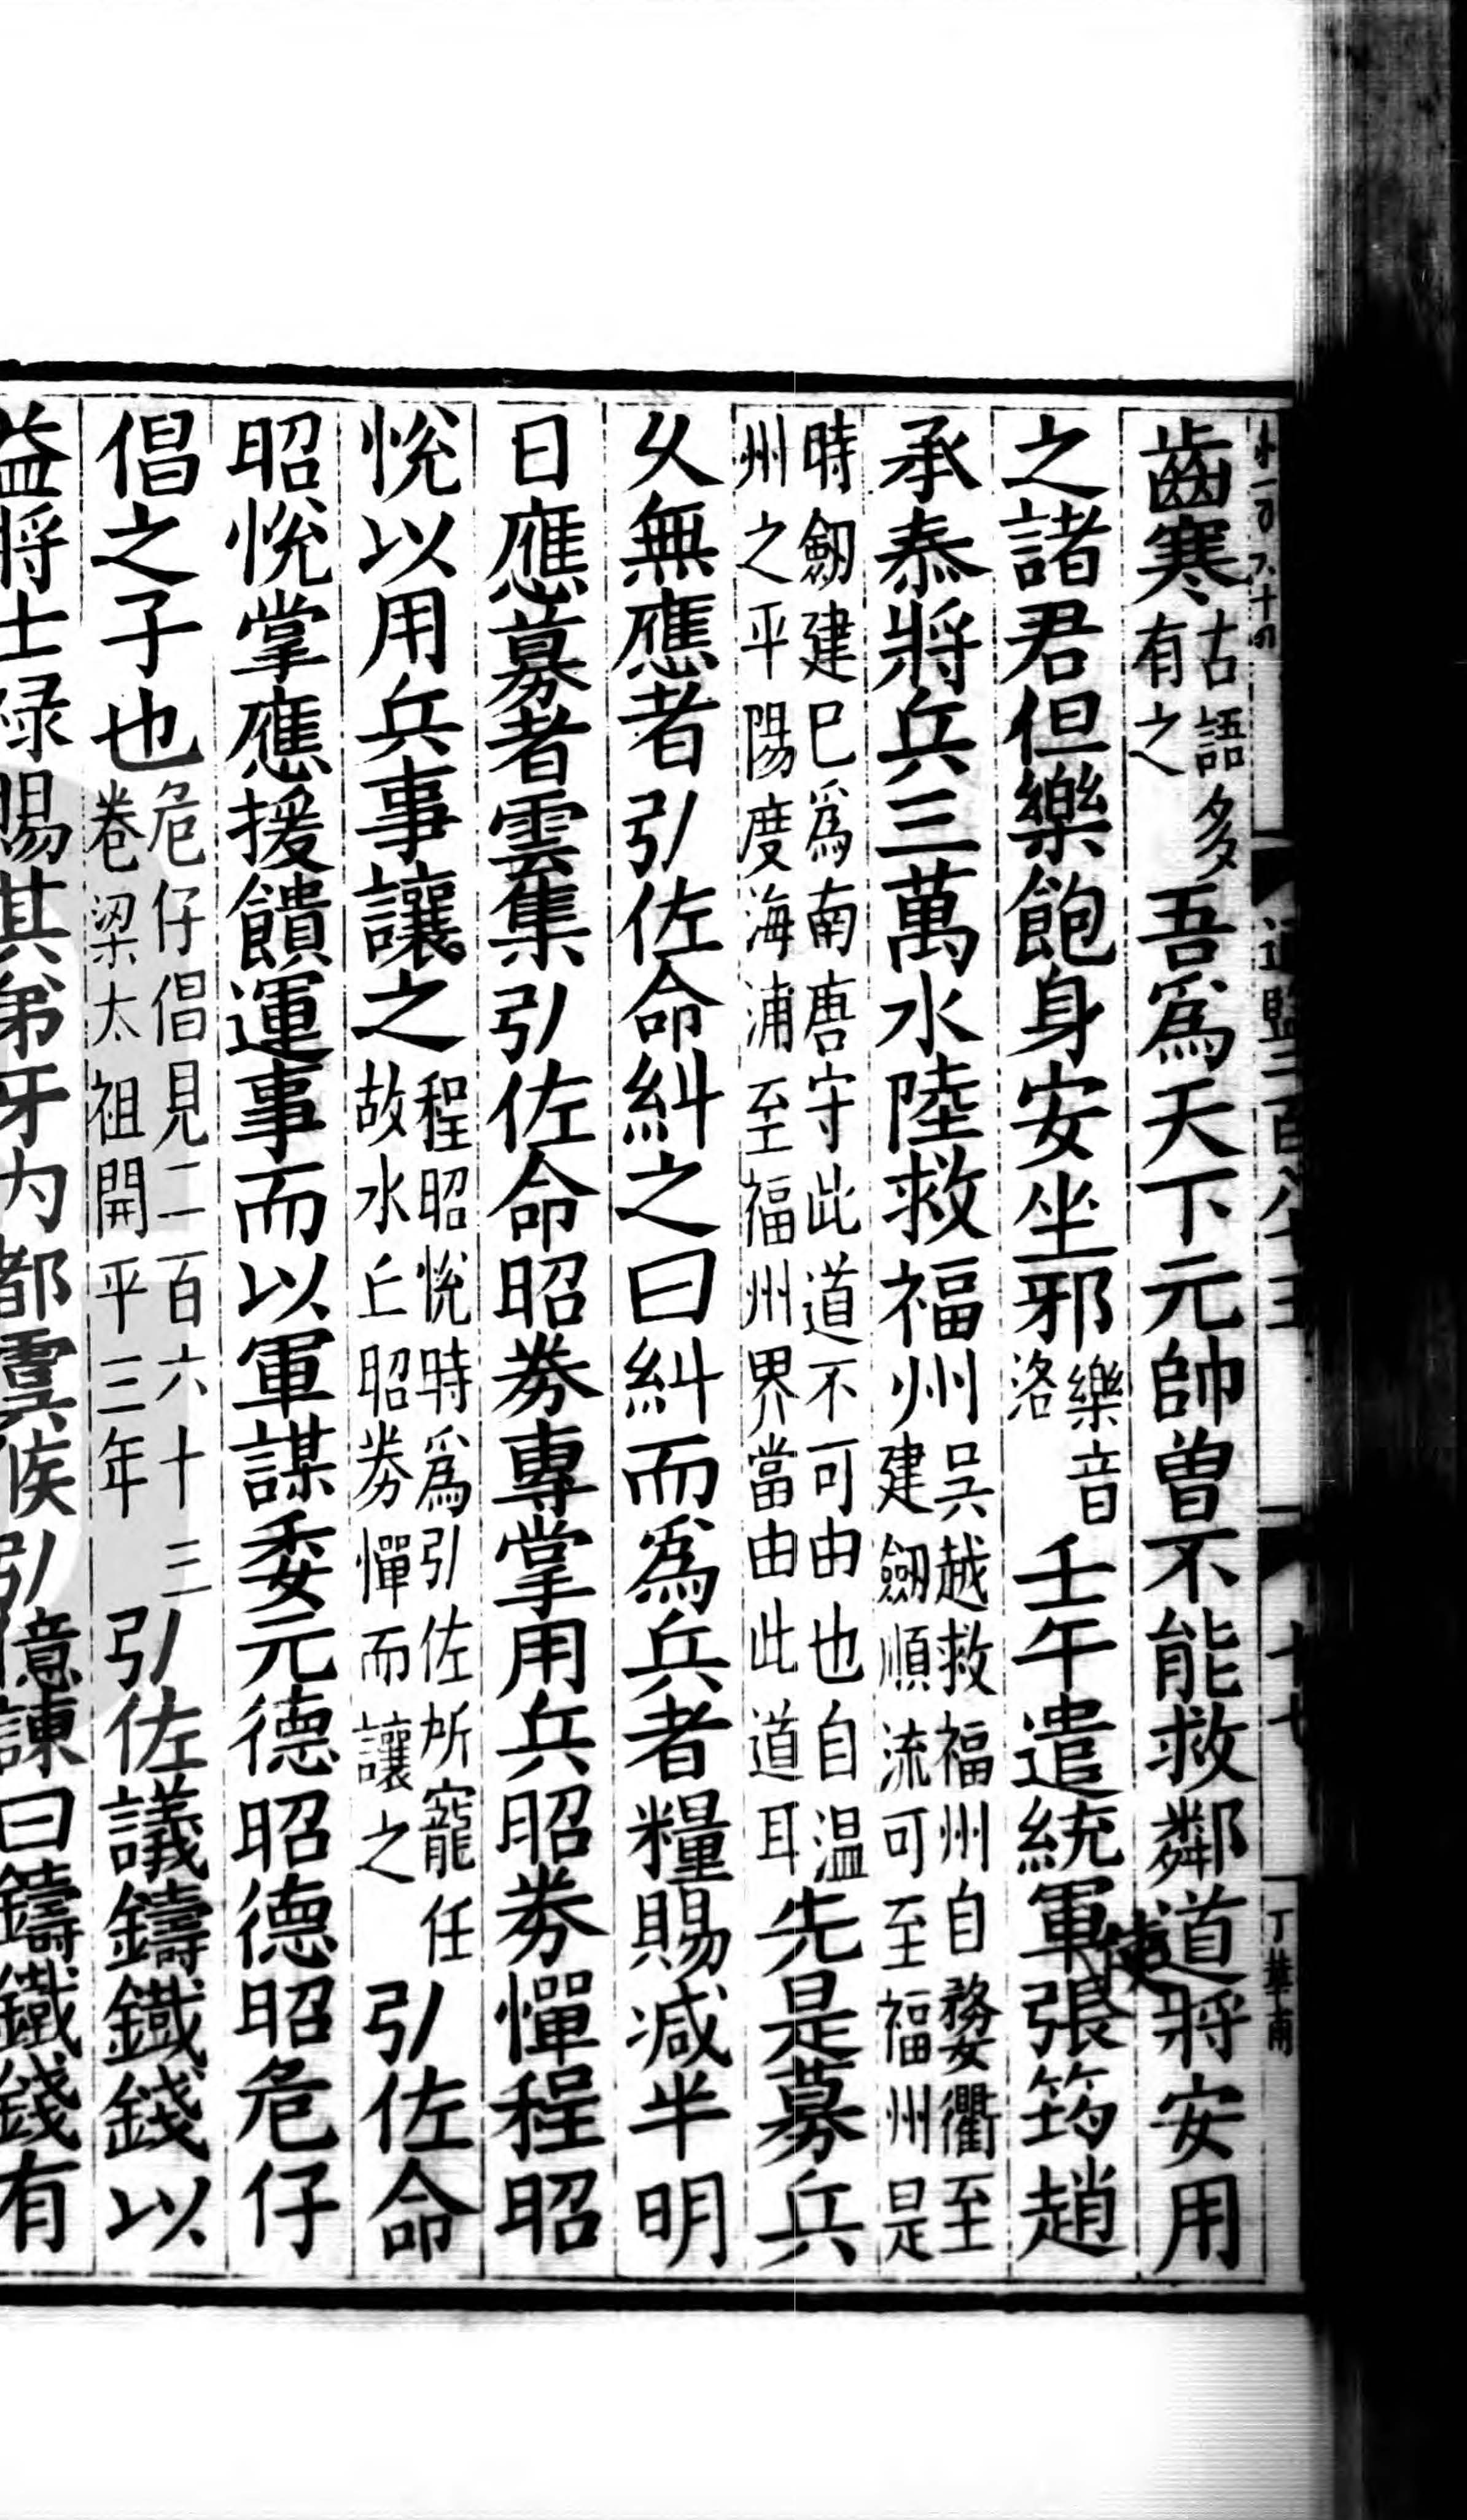 通鑑二百八十五 十七 丁華甫
齒寒古語多有之吾爲天下元帥曽不能救鄰道將安用
之諸君但樂飽身安坐邪樂音洛壬午遣統軍使張筠趙
承泰將兵三萬水陸救福州吳越救福州自婺衢至建劒順流可至福州是
時劒建已爲南唐守此道不可由也自温州之平陽度海浦至福州界當由此道耳先是募兵
乆無應者弘佐命糾之曰糾而爲兵者糧賜减半明
日應募者雲集弘佐命昭劵專掌用兵昭劵憚程昭
悅以用兵事讓之程昭悅時爲弘佐所寵任故水丘昭劵憚而讓之弘佐命
昭悅掌應援饋運事而以軍謀委元德昭德昭危仔
倡之子也危仔倡見二百六十三卷梁太祖開平三年弘佐議鑄鐵錢以
益將士禄賜其弟牙内都虞候弘億諫曰鑄鐵錢有